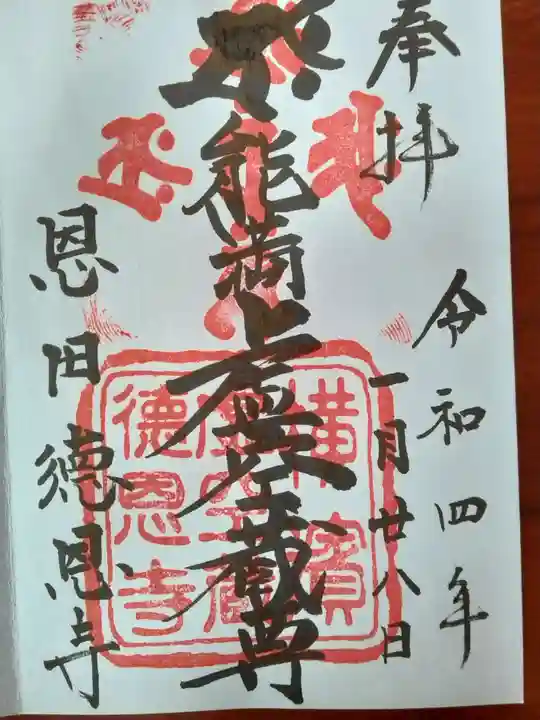 奉拝
令和四年
一月廿八日
能満虚空蔵尊
恩田徳恩寺
横濱
虚空蔵
徳恩寺